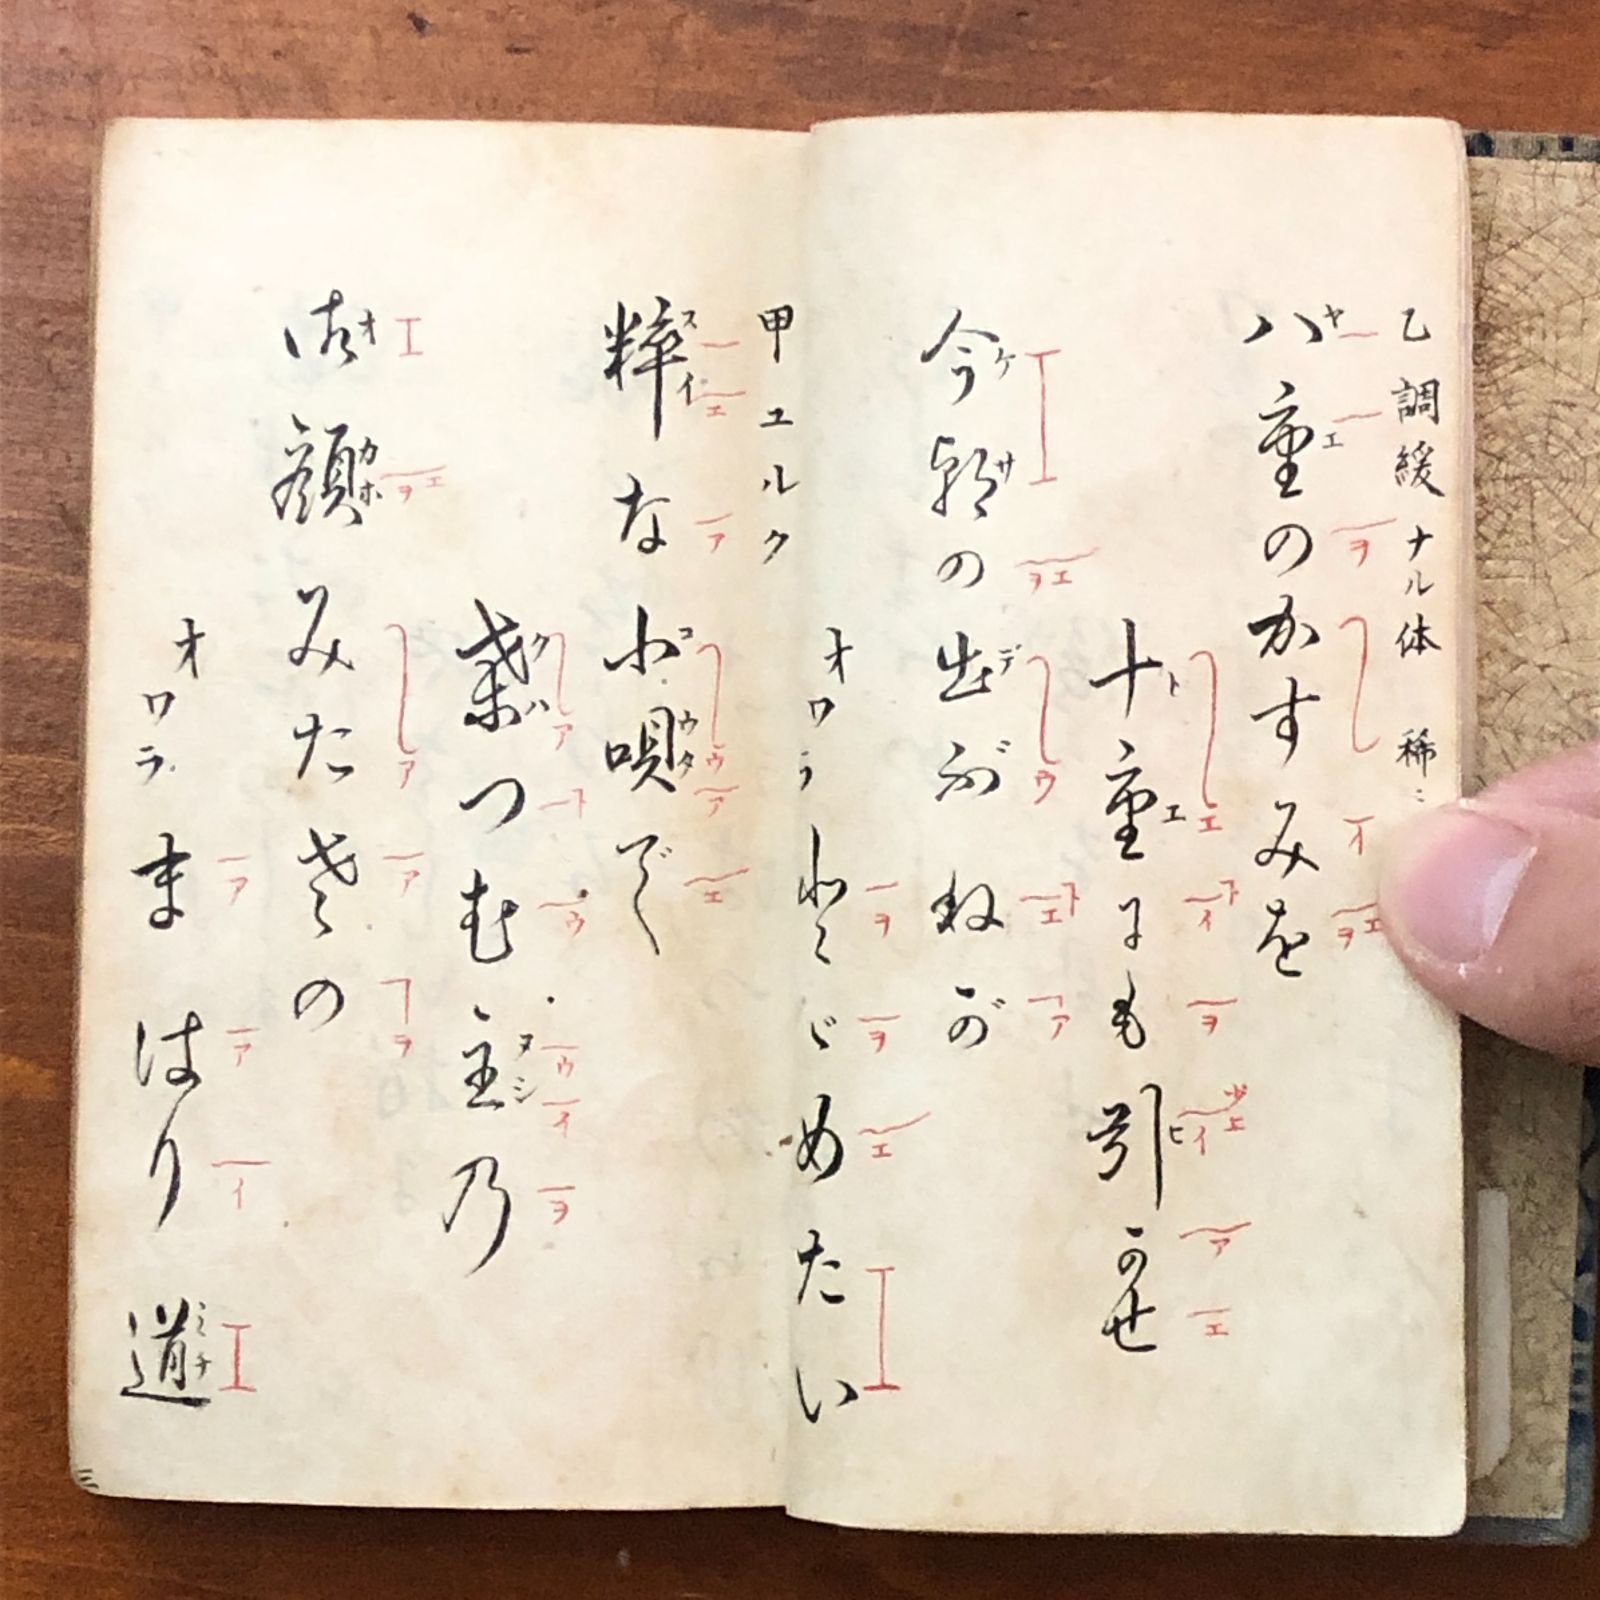 乙調緩ナル体 稀ニ
八重のかすみを
十重にも引かせ
今朝の出ぶねが
オワラとゞめたい
甲ユルク
粋な小唄で
桑つむ主の
御顔みたさの
オワラまはり道
三